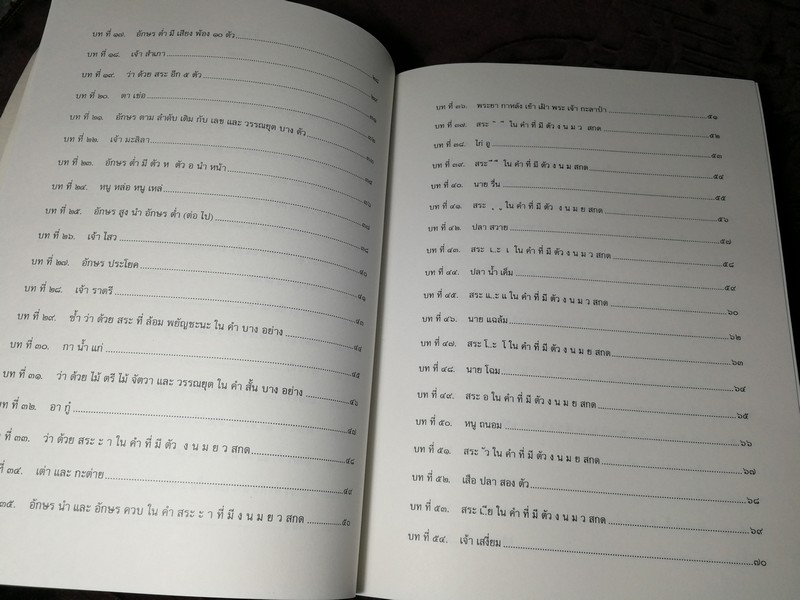 บท ที่ ๑๗. อักษร ต่ำ มี เสียง พ้อง ๑๐ ตัว
บท ที่ ๑๘. เจ้า สำเภา
บท ที่ ๑๙. ว่า ด้วย สระ อีก ๕ ตัว
บท ที่ ๒๐. ตา เซ่อ
บท ที่ ๒๑. อักษร ตาม ลำดับ เดิม กับ เลข และ วรรณยุต บาง ตัว
บท ที่ ๒๒. เจ้า มะลิลา
บท ที่ ๒๓. อักษร ต่ำ มี ตัว ห ตัว อ นำ หน้า
บท ที่ ๒๔. หนู หล่อ หนู เหล่
บท ที่ ๒๕. อักษร สูง นำ อักษร ต่ำ (ต่อ ไป)
บท ที่ ๒๖. เจ้า ไสว
บท ที่ ๒๗. อักษร ประโยค ๔๐
บท ที่ ๒๘. เจ้า ราตรี
บท ที่ ๒๙. ซ้ำ ว่า ด้วย สระ ที่ ล้อม พยัญชะนะ ใน คำ บาง อย่าง ๔๔
บท ที่ ๓๐. กา น้ำ แก่ ๔๕
บท ที่ ๓๑. ว่า ด้วย ไม้ ตรี ไม้ จัตวา และ วรรณยุต ใน คำ สั้น บาง อย่าง ๔๖
บท ที่ ๓๒. อา กู๋ ๔๘
ที่ ๓๓. ว่า ด้วย สระ ะ า ใน คำ ที่ มี ตัว ง น ม ย ว สกด ๔๘
ที่ ๓๔. เต่า และ กะต่าย ๔๙
๓๕. อักษร นำ และ อักษร ควบ ใน คำ สระ ะ า ที่ มี ง น ม ย ว สกด ๕๐
บท ที่ ๓๖. พระยา กาหลัง เข้า เฝ้า พระ เจ้า กะลาป๋า ๕๑
บท ที่ ๓๗. สระ ิ ี ใน คำ ที่ มี ตัว ง น ม ว สกด ๕๒
บท ที่ ๓๘. ไก่ อู ๕๓
บท ที่ ๓๙. สระ ึ ื ใน คำ ที่ มี ตัว ง น ม สกด ๕๔
บท ที่ ๔๐. นาย รื่น ๕๕
บท ที่ ๔๑. สระ ุ ู ใน คำ ที่ มี ตัว ง น ม ย สกด ๕๖
บท ที่ ๔๒. ปลา สวาย ๕๗
บท ที่ ๔๓. สระ เ..ะ เ ใน คำ ที่ มี ตัว ง น ม ว สกด ๕๘
บท ที่ ๔๔. ปลา น้ำ เค็ม ๕๙
บท ที่ ๔๕. สระ แ..ะ แ ใน คำ ที่ มี ตัว ง น ม ว สกด ๖๐
บท ที่ ๔๖. นาย แฉล้ม ๖๒
บท ที่ ๔๗. สระ โ..ะ โ ใน คำ ที่ มี ตัว ง น ม ย สกด ๖๓
บท ที่ ๔๘. นาย โฉม ๖๔
บท ที่ ๔๙. สระ อ ใน คำ ที่ มี ตัว ง น ม ย สกด ๖๕
บท ที่ ๕๐. หนู ถนอม ๖๖
บท ที่ ๕๑. สระ ัว ใน คำ ที่ มี ตัว ง น ม ย สกด ๖๗
บท ที่ ๕๒. เสือ ปลา สอง ตัว ๖๘
บท ที่ ๕๓. สระ เีย ใน คำ ที่ มี ตัว ง น ม ว สกด ๖๙
บท ที่ ๕๔. เจ้า เสงี่ยม ๗๐